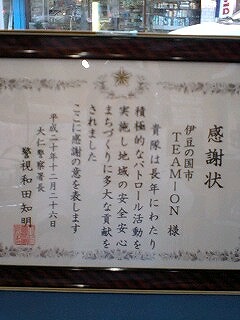 感謝状
伊豆の国市
TEAM-ON 様
貴隊は長年にわたり
積極的なパトロール活動を
実施し地域の安全安心
まちづくりに多大な貢献を
されました
ここに感謝の意を表します
平成二十年十二月二十六日
大仁警察署長
警視 和田知明